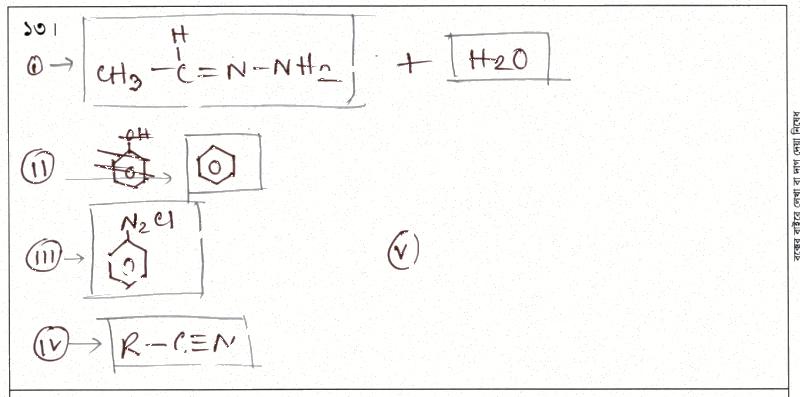 ১৩।
i → CH3 – C = N – NH2 + H2O
H
II → OH
III → N2Cl
V
IV → R – C ≡ N
বক্সের বাইরে লেখা বা দাগ দেয়া নিষেধ